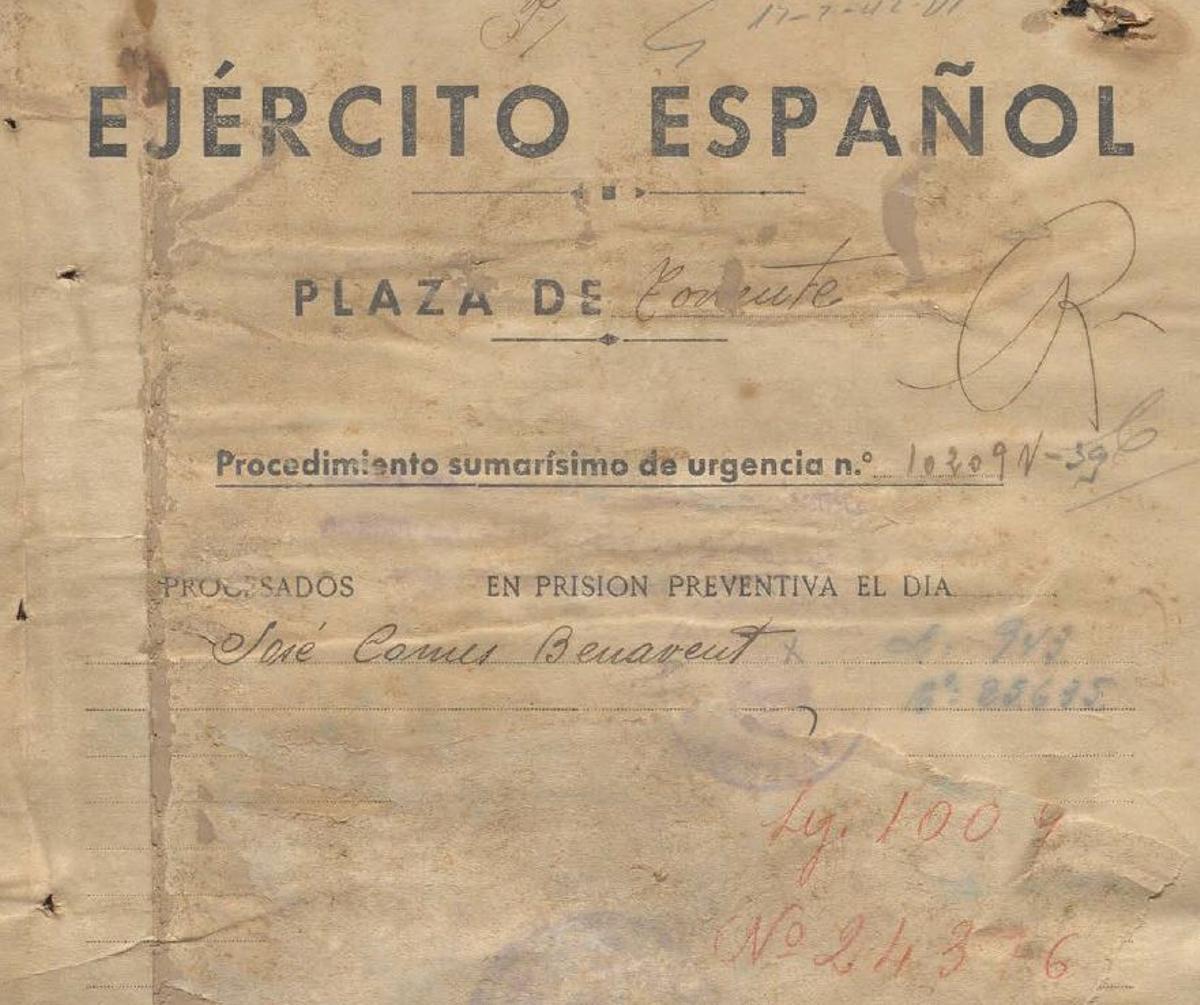 17-7-42
EJÉRCITO ESPAÑOL
PLAZA DE Torrente
Procedimiento sumarísimo de urgencia n.º 10209 V-39
PROCESADOS EN PRISION PREVENTIVA EL DIA
José Comes Benavent X
Lg. 1009
Nº 24376